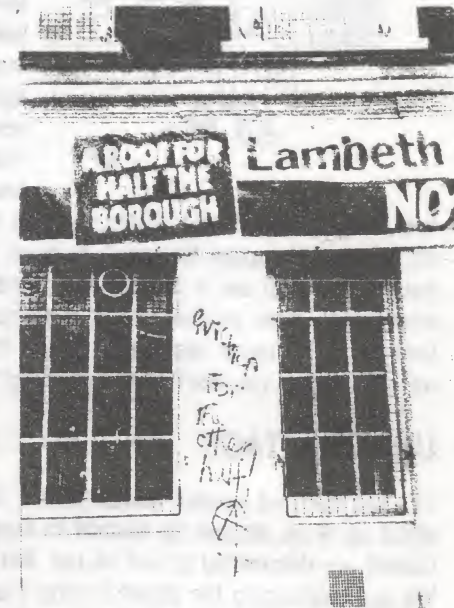 A ROOF FOR
HALF THE
BOROUGH
Lambeth
NO
Evictions
For
the
other
half